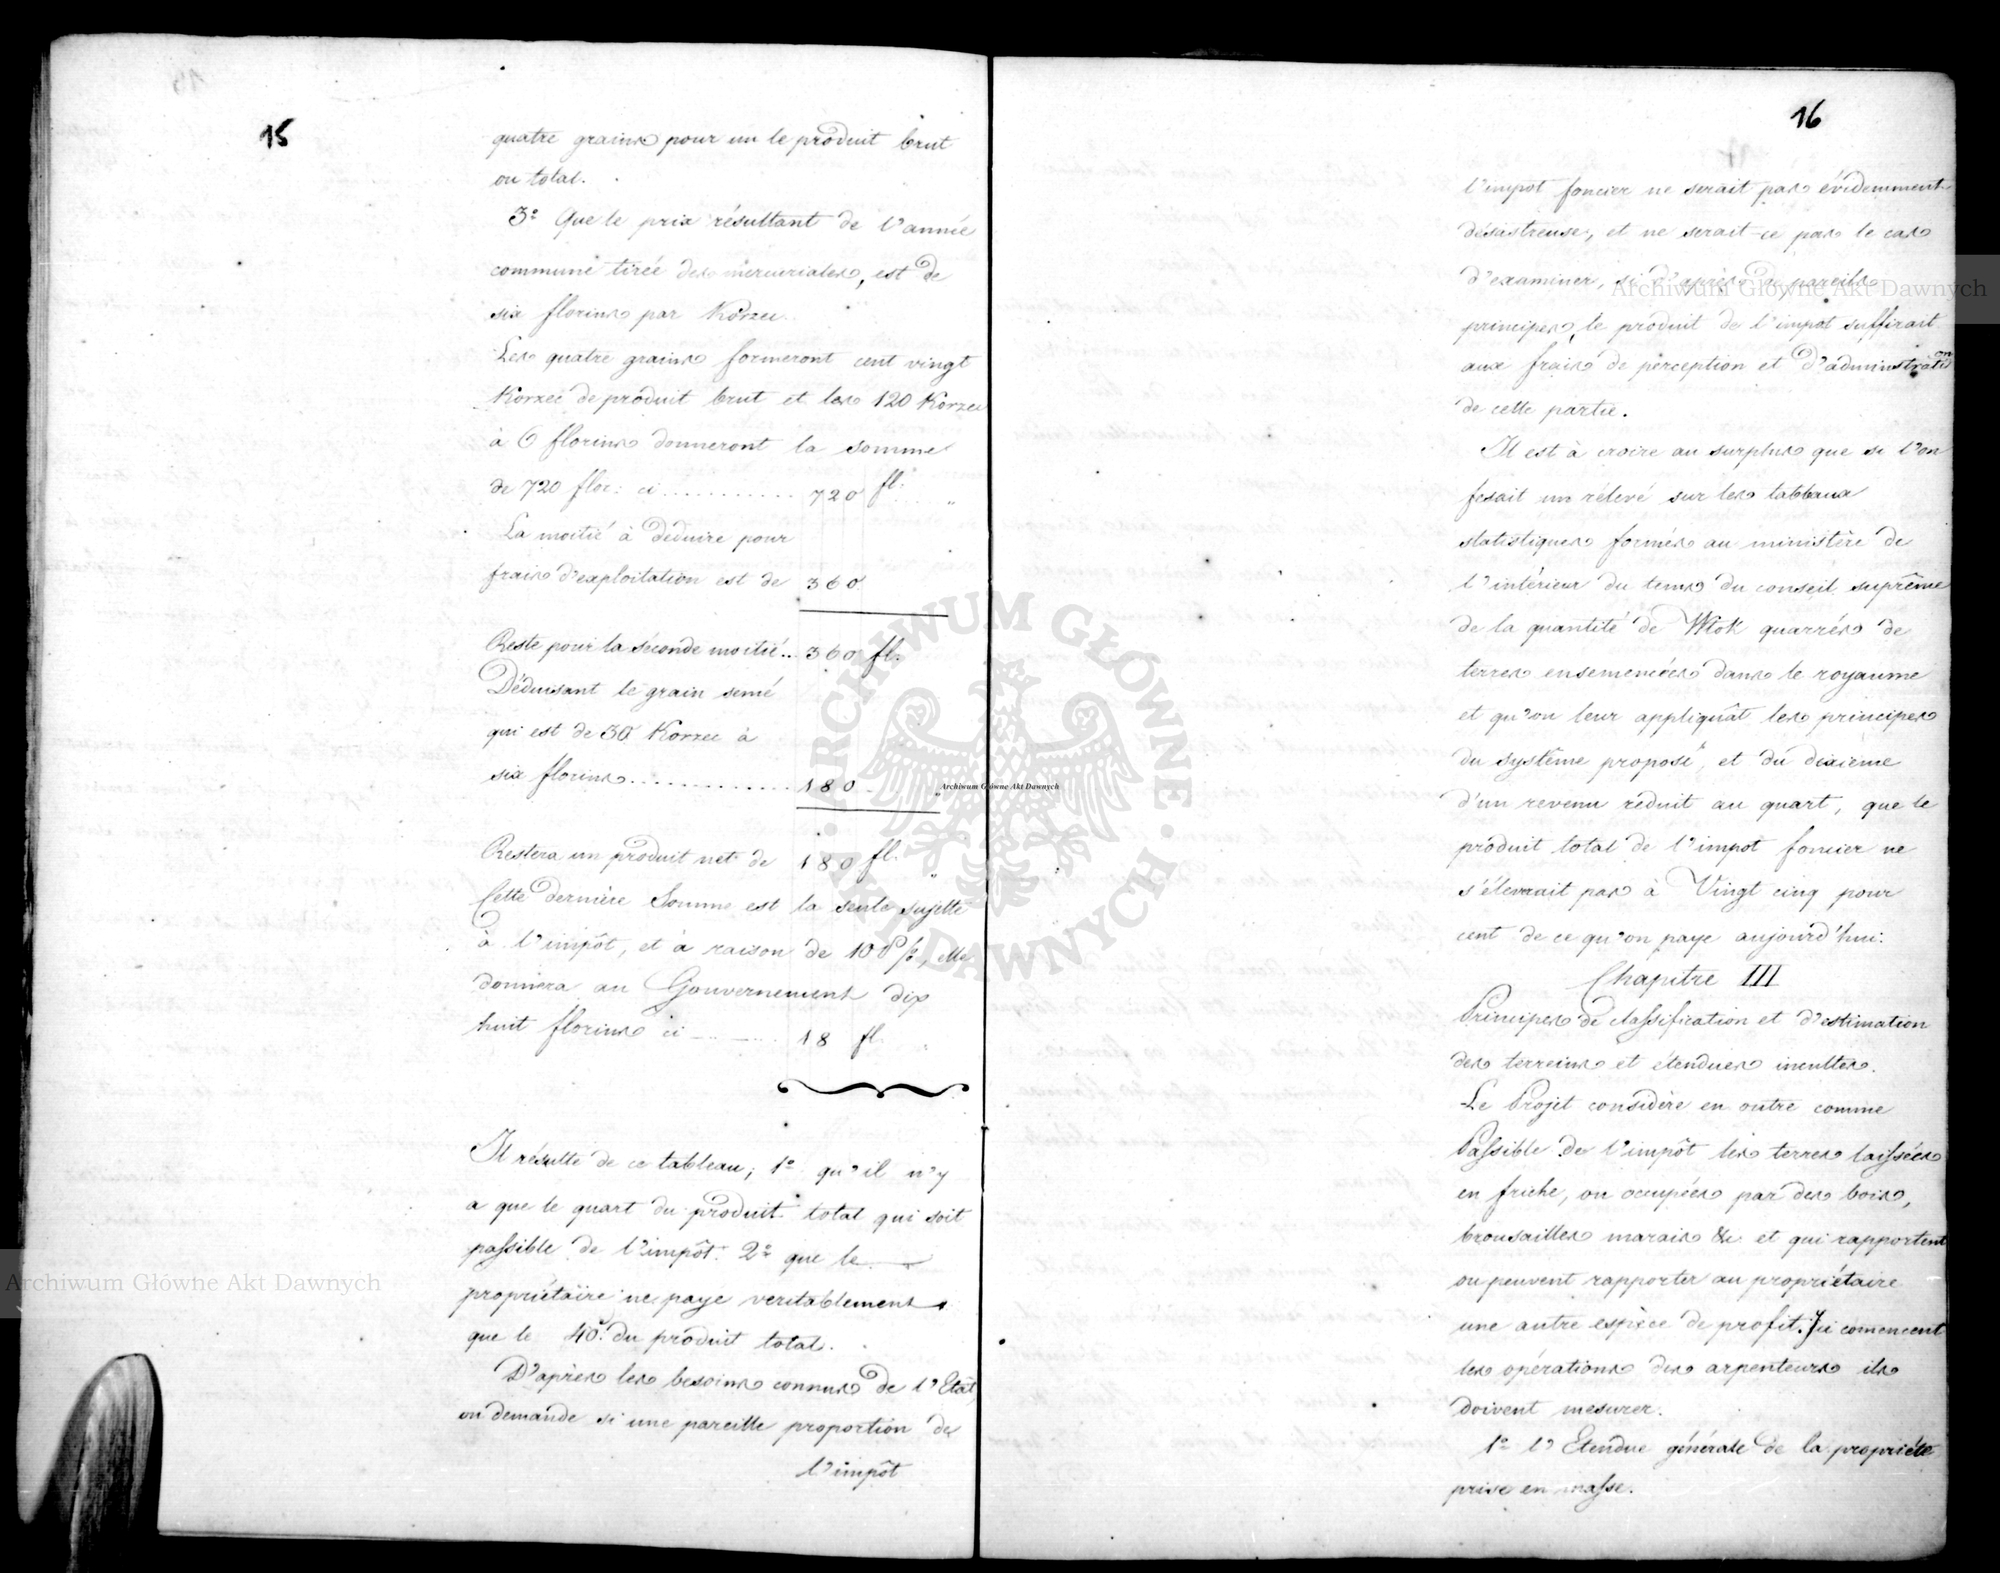 15
quatre grains pour un le produit brut
ou total.
3° Que le prix résultant de l'année
commune tirée des mercuriales, est de
six florins par Korzec.
Les quatre grains formeront cent vingt
Korzec de produit brut et les 120 Korzec
à 6 florins donneront la somme
de 720 flor: ci ............ 720 fl. "
La moitié à déduire pour
frais d'exploitation est de 360
Reste pour la seconde moitié.. 360 fl.
Déduisant le grain semé
qui est de 30 Korzec à
six florins.............. 180 "
Restera un produit net de 180 fl. "
Cette dernière Somme est la seule sujette
à l'impôt, et à raison de 10 p%, elle
donnera au Gouvernement dix
huit florins ci ........ 18 fl. "
Il résulte de ce tableau; 1° qu'il n'y
a que le quart du produit total qui soit
passible de l'impôt. 2° que le
propriétaire ne paye veritablement
que le 40e du produit total.
D'après les besoins connus de l'Etat,
on demande si une pareille proportion de
l'impôt
16
l'impôt foncier ne serait pas évidemment
désastreuse, et ne serait-ce pas le cas
d'examiner, si d'après de pareils
principes, le produit de l'impot suffirait
aux frais de perception et d'administration
de cette partie.
Il est à croire au surplus que si l'on
fesait un rélevé sur les tableaux
statistiques formés au ministère de
l'intérieur du tems du conseil suprême
de la quantité de Wlok quarrés de
terres ensemencées dans le royaume
et qu'on leur appliquât les principes
du système proposé, et du dixieme
d'un revenu réduit au quart, que le
produit total de l'impot foncier ne
s'éleverait pas à Vingt cinq pour
cent de ce qu'on paye aujourd'hui.
Chapitre III
Principes de classification et d'estimation
des terreins et étendues incultes.
Le Projet considère en outre comme
Passible de l'impôt les terres laissées
en friche, ou occupées par des bois,
brousailles marais &c et qui rapportent
ou peuvent rapporter au propriétaire
une autre espèce de profit. Ici comencent
les opérations des arpenteurs ils
doivent mesurer.
1° l'Etendue générale de la propriété
prise en masse.
Archiwum Główne Akt Dawnych
Archiwum Główne Akt Dawnych
Archiwum Główne Akt Dawnych
ARCHIWUM GŁÓWNE AKT DAWNYCH